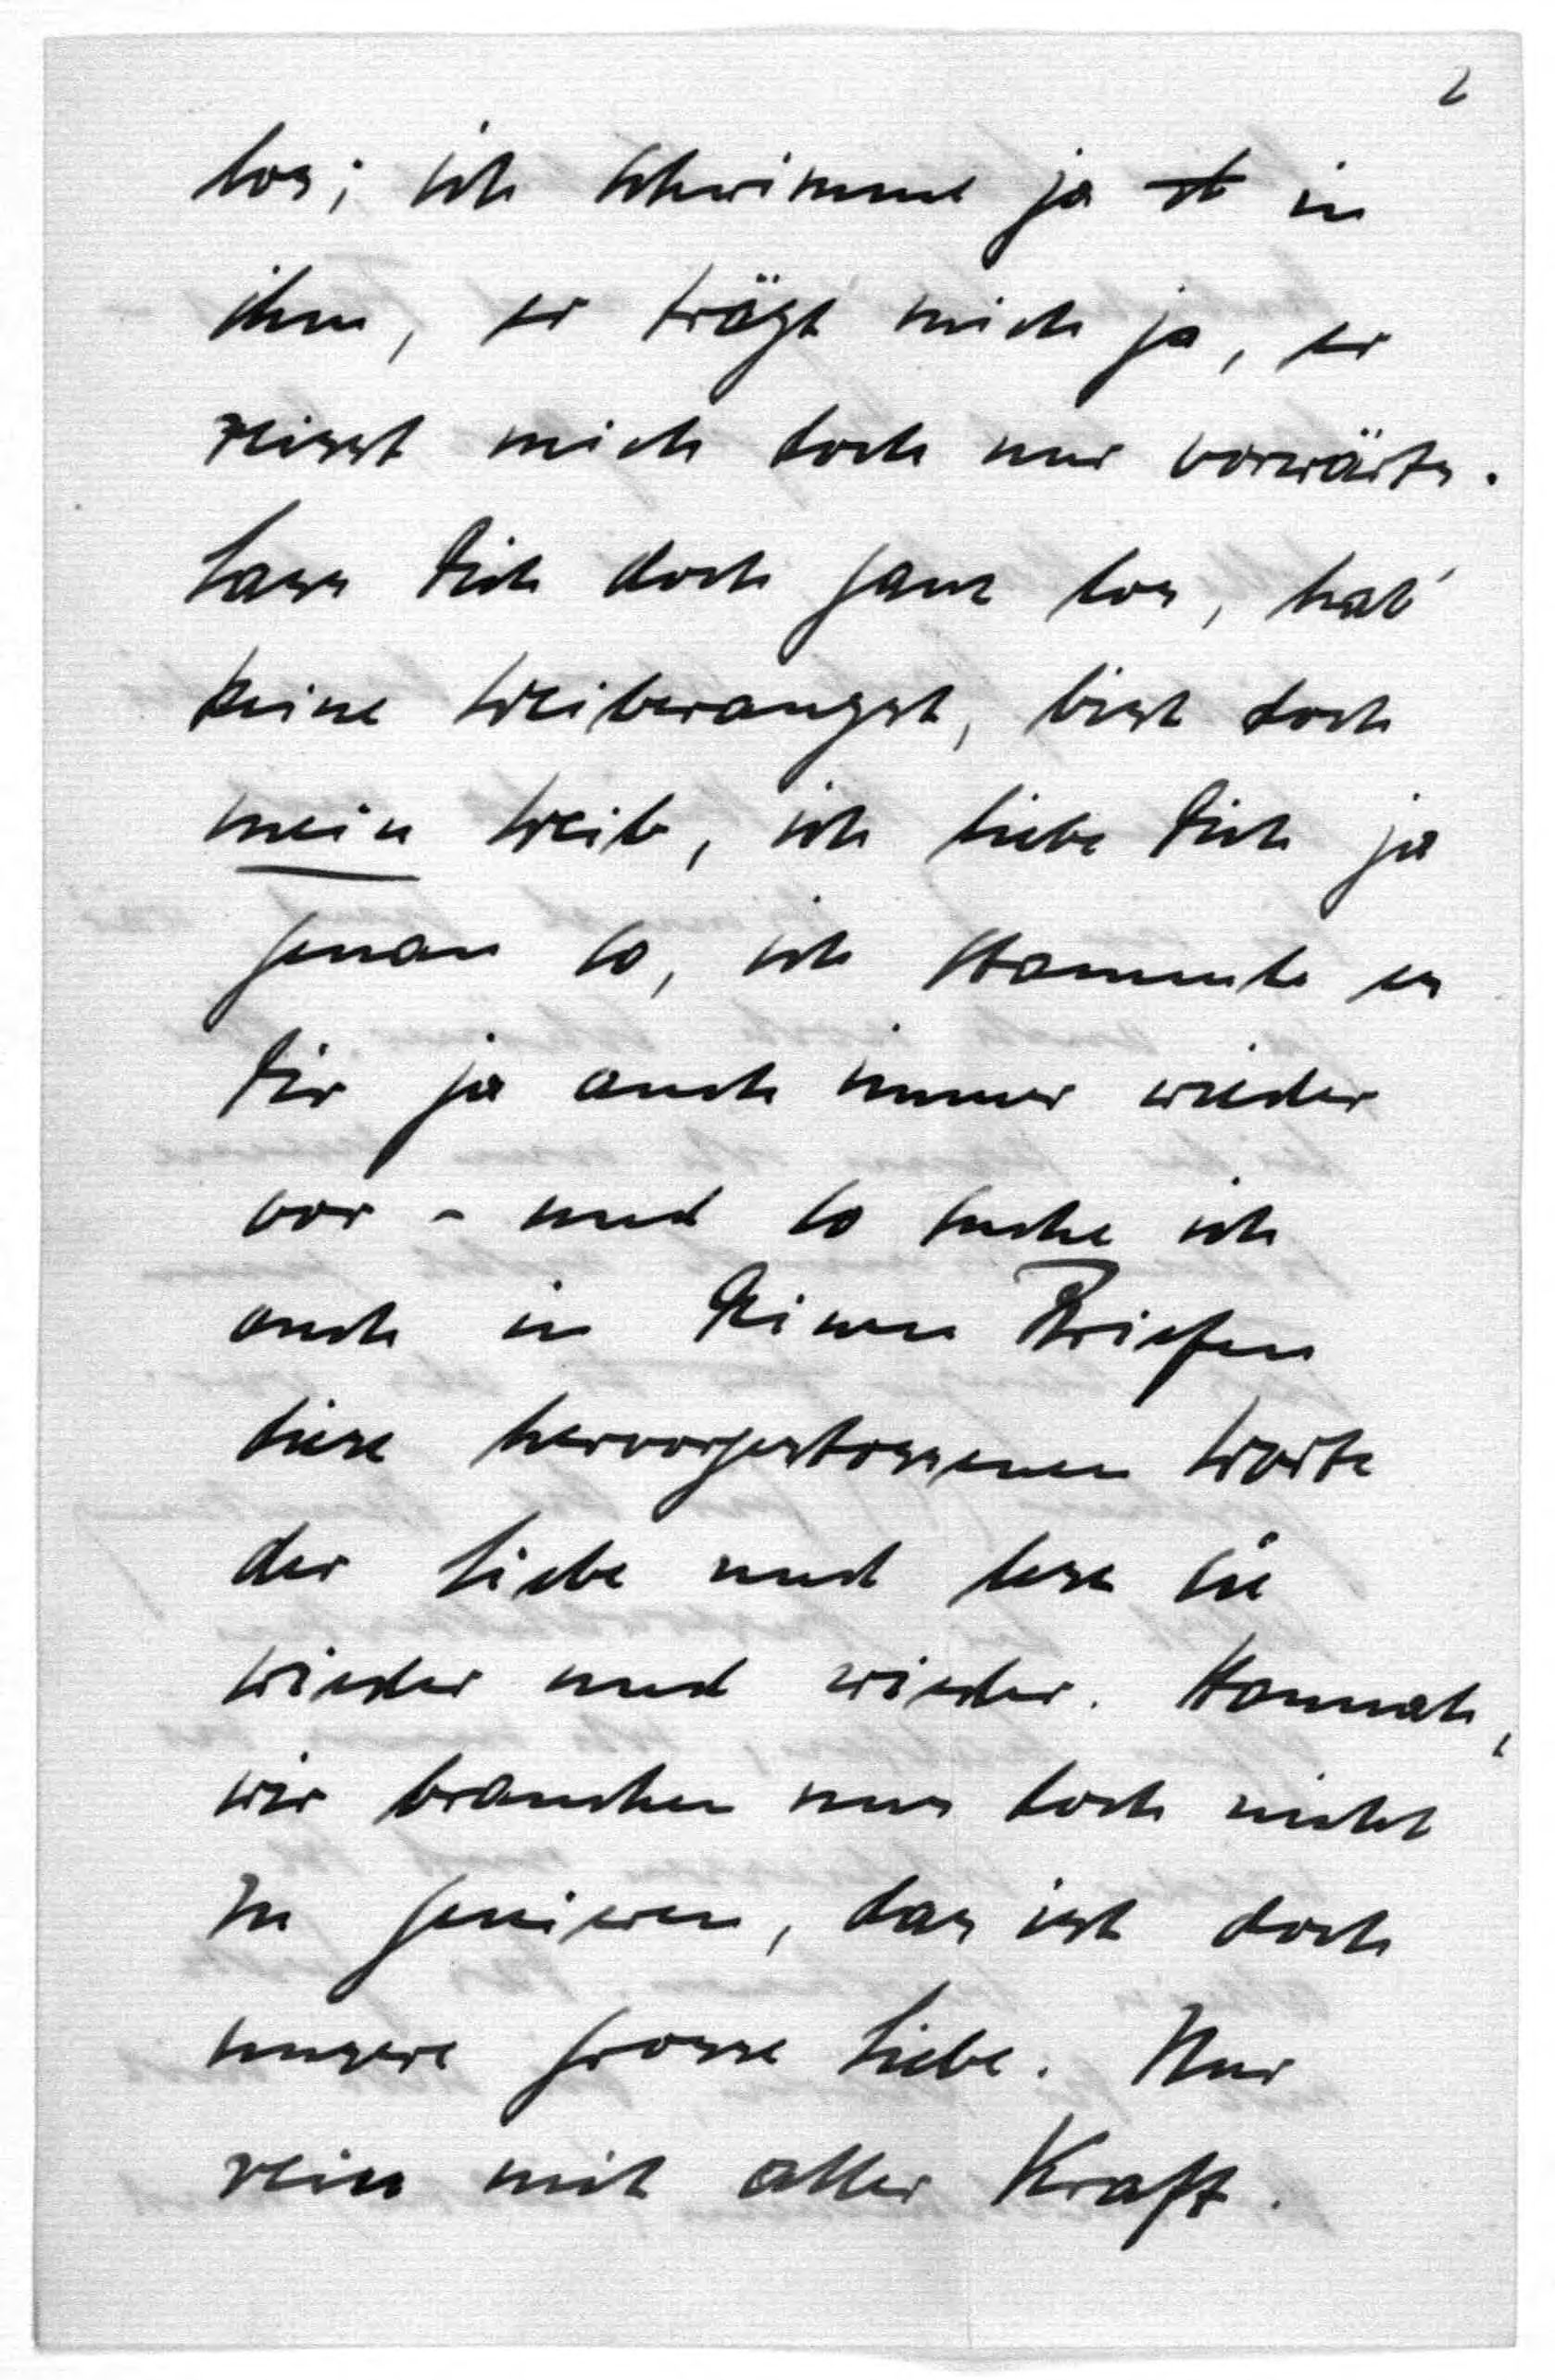 2
los; ich schwimme ja in
ihm, er trägt mich ja, er
reisst mich doch nur vorwärts.
Lass Dich doch ganz los, hab'
keine Weiberangst, bist doch
mein Weib, ich liebe Dich ja
genau so, ich stammle es
Dir ja auch immer wieder
vor - und so suche ich
auch in Deinen Briefen
diese hervorgestossenen Worte
der Liebe und lese sie
wieder und wieder. Hannah,
wir brauchen uns doch nicht
zu genieren, das ist doch
unsere grosse Liebe. Nur
rein mit aller Kraft.